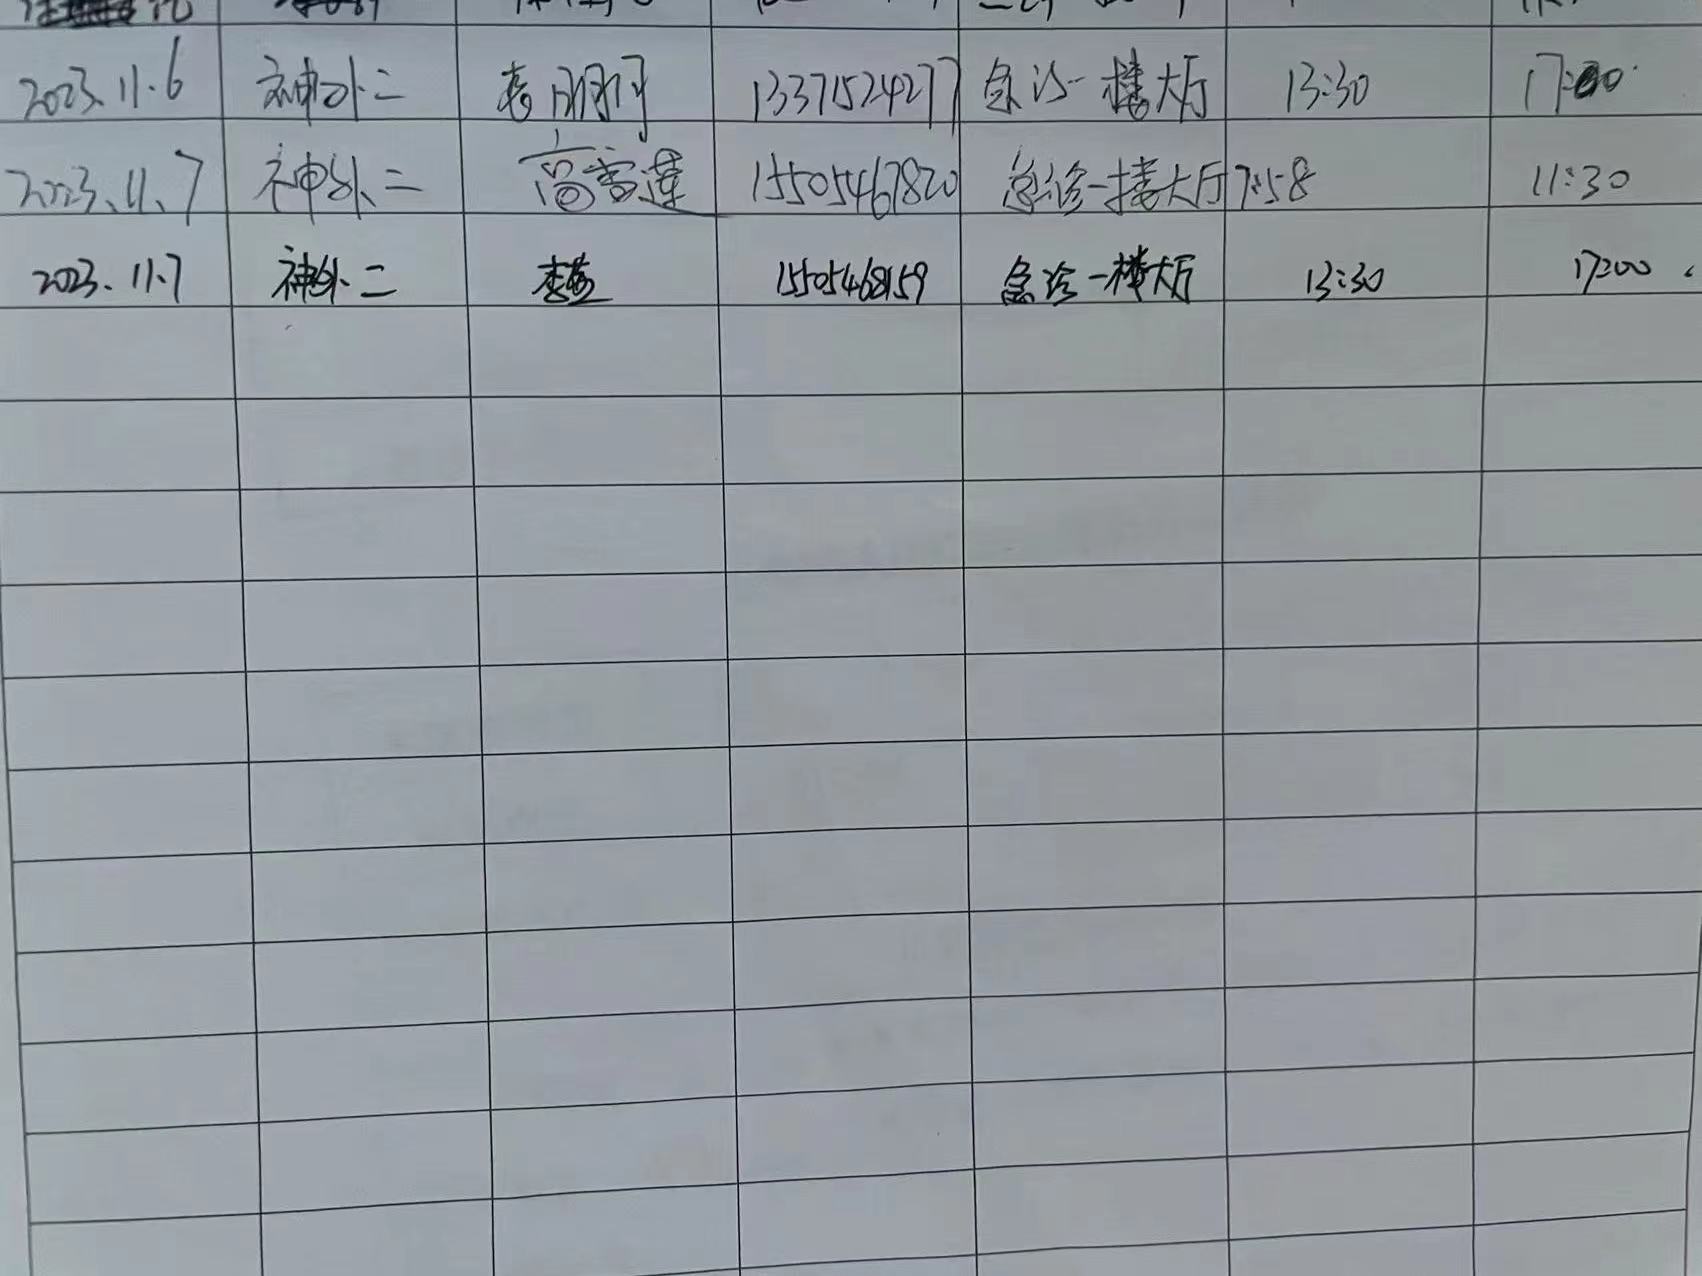 2023.11.6 神外二 13371524277 急诊一楼大厅 13:30 17:00
2023.11.7 神外二 高雪莲 15505467820 急诊一楼大厅 7:58 11:30
2023.11.7 神外二 15505468159 急诊一楼大厅 13:30 17:00